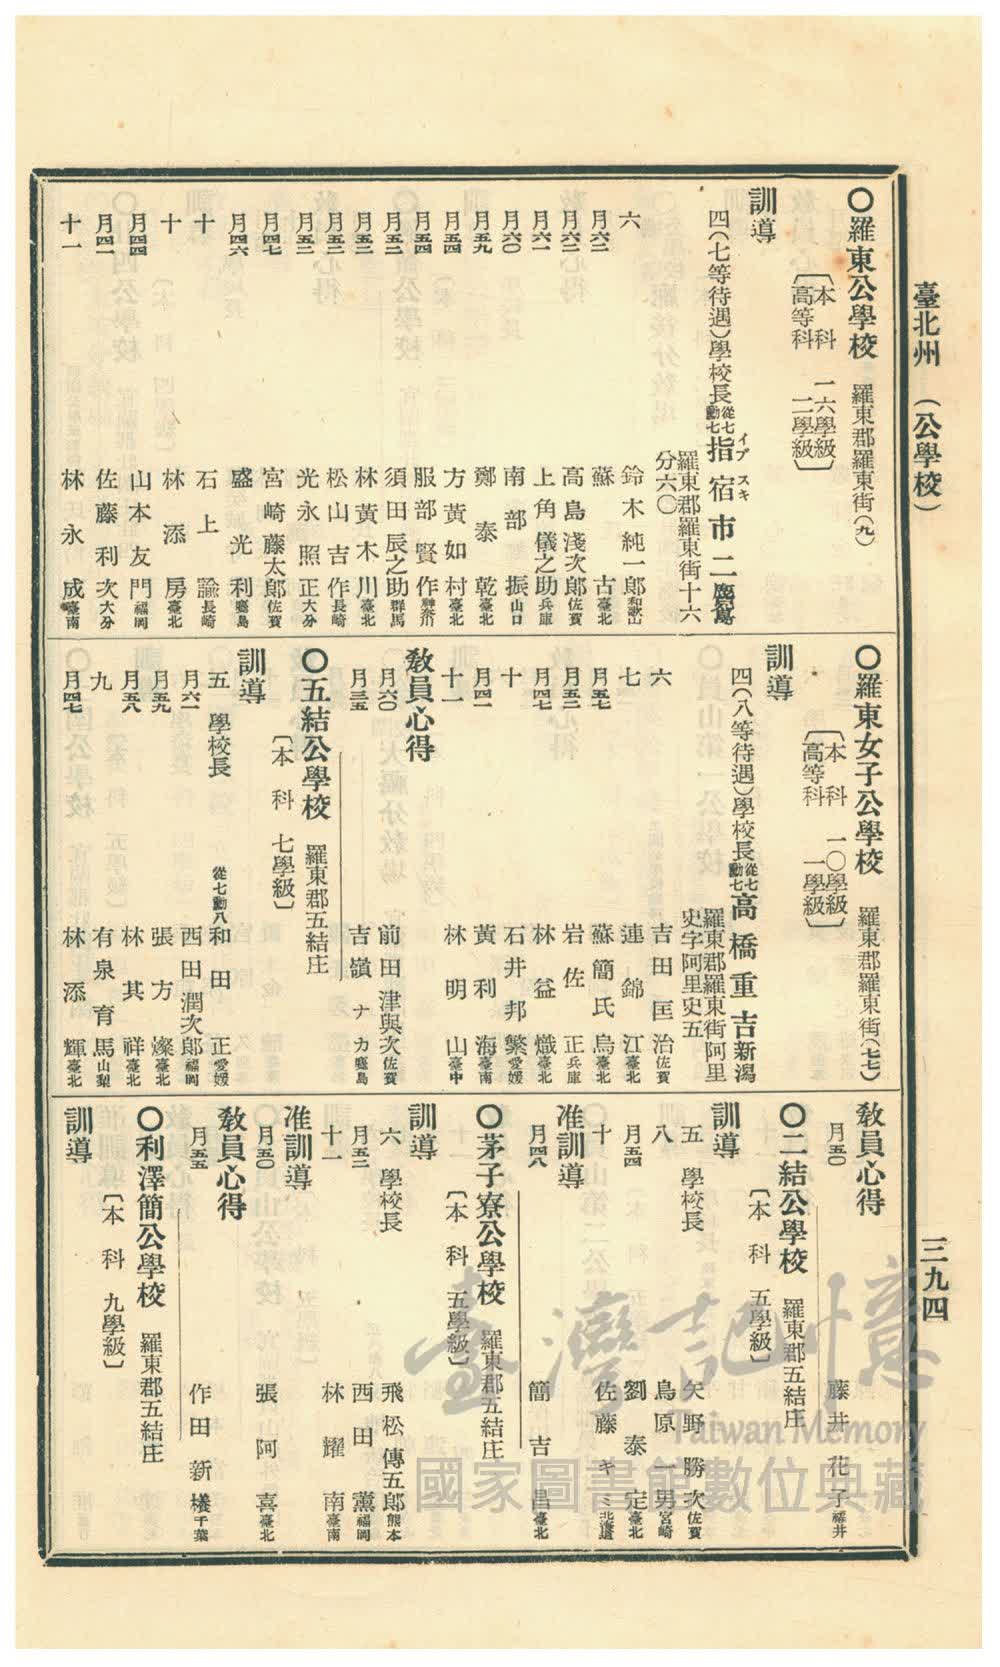 臺北州 (公學校)
三九四
〇羅東公學校 羅東郡羅東街(九)
〔本科 一六學級〕
〔高等科 二學級〕
訓導
四(七等待遇)學校長 從七勳七 指宿市二 鹿兒島
イブスキ
羅東郡羅東街十六
分六〇
六 鈴木純一郎 和歌山
月六二 蘇古 臺北
月六二 高島淺次郎 佐賀
月六一 上角儀之助 兵庫
月六〇 南部振 山口
月五九 鄭泰乾 臺北
月五四 方黃如村 臺北
月五四 服部賢作 神奈川
月五二 須田辰之助 群馬
月五二 林黃木川 臺北
月五二 松山吉作 長崎
月五二 光永照正 大分
月四七 宮崎藤太郎 佐賀
月四六 盛光利 鹿兒島
十 石上諭 長崎
十 林添房 臺北
月四四 山本友門 福岡
月四一 佐藤利次 大分
十一 林永成 臺南
〇羅東女子公學校 羅東郡羅東街(七七)
〔本科 一〇學級〕
〔高等科 一學級〕
訓導
四(八等待遇)學校長 從七勳七 高橋重吉 新潟
羅東郡羅東街阿里
史字阿里史五
六 吉田匡治 佐賀
七 連錦江 臺北
月五七 蘇簡氏烏 臺北
月五二 岩佐正 兵庫
月四七 林益熾 臺北
十 石井邦繁 愛媛
月四一 黃利海 臺南
十一 林明山 臺中
教員心得
月六〇 前田津與次 佐賀
月三五 吉嶺ナカ 鹿兒島
〇五結公學校 羅東郡五結庄
〔本科 七學級〕
訓導
五 學校長 從七勳八 和田正 愛媛
月六一 西田潤次郎 福岡
月五九 張方燦 臺北
月五八 林其祥 臺北
九 有泉育馬 山梨
月四七 林添輝 臺北
教員心得
月五〇 藤井花子 福井
〇二結公學校 羅東郡五結庄
〔本科 五學級〕
訓導
五 學校長 矢野勝次 佐賀
八 鳥原一男 宮崎
月五四 劉泰定 臺北
十 佐藤キミ 北海道
准訓導
月四八 簡吉昌 臺北
〇茅子寮公學校 羅東郡五結庄
〔本科 五學級〕
訓導
六 學校長 飛松傳五郎 熊本
月五二 西田薰 福岡
十一 林耀南 臺南
准訓導
月五〇 張阿喜 臺北
教員心得
月五五 作田新 千葉
〇利澤簡公學校 羅東郡五結庄
〔本科 九學級〕
訓導
臺灣記憶
Taiwan Memory
國家圖書館數位典藏